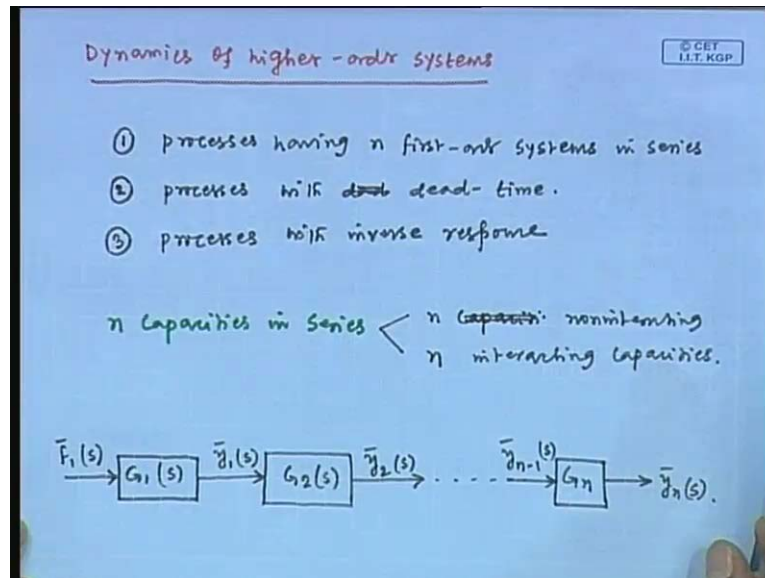 Dynamics of higher-order systems
© CET
I.I.T. KGP
① processes having n first-order systems in series
② processes with dead-time.
③ processes with inverse response
n capacities in series < n noninteracting
n interacting capacities.
F̄₁(s) G₁(s) ȳ₁(s) G₂(s) ȳ₂(s) . . . . ȳₙ₋₁(s) Gₙ ȳₙ(s).